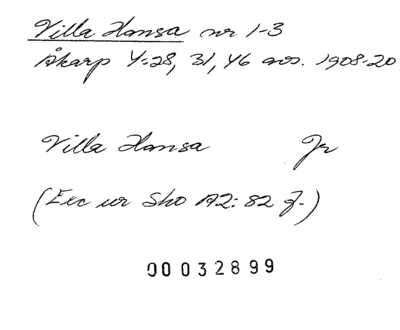 Villa Hansa nr 1-3
Åkarp 4:28, 31, 46 avs. 1908-20
Villa Hansa Jr
(Exc ur Sko A2: 82 f.)
00032899